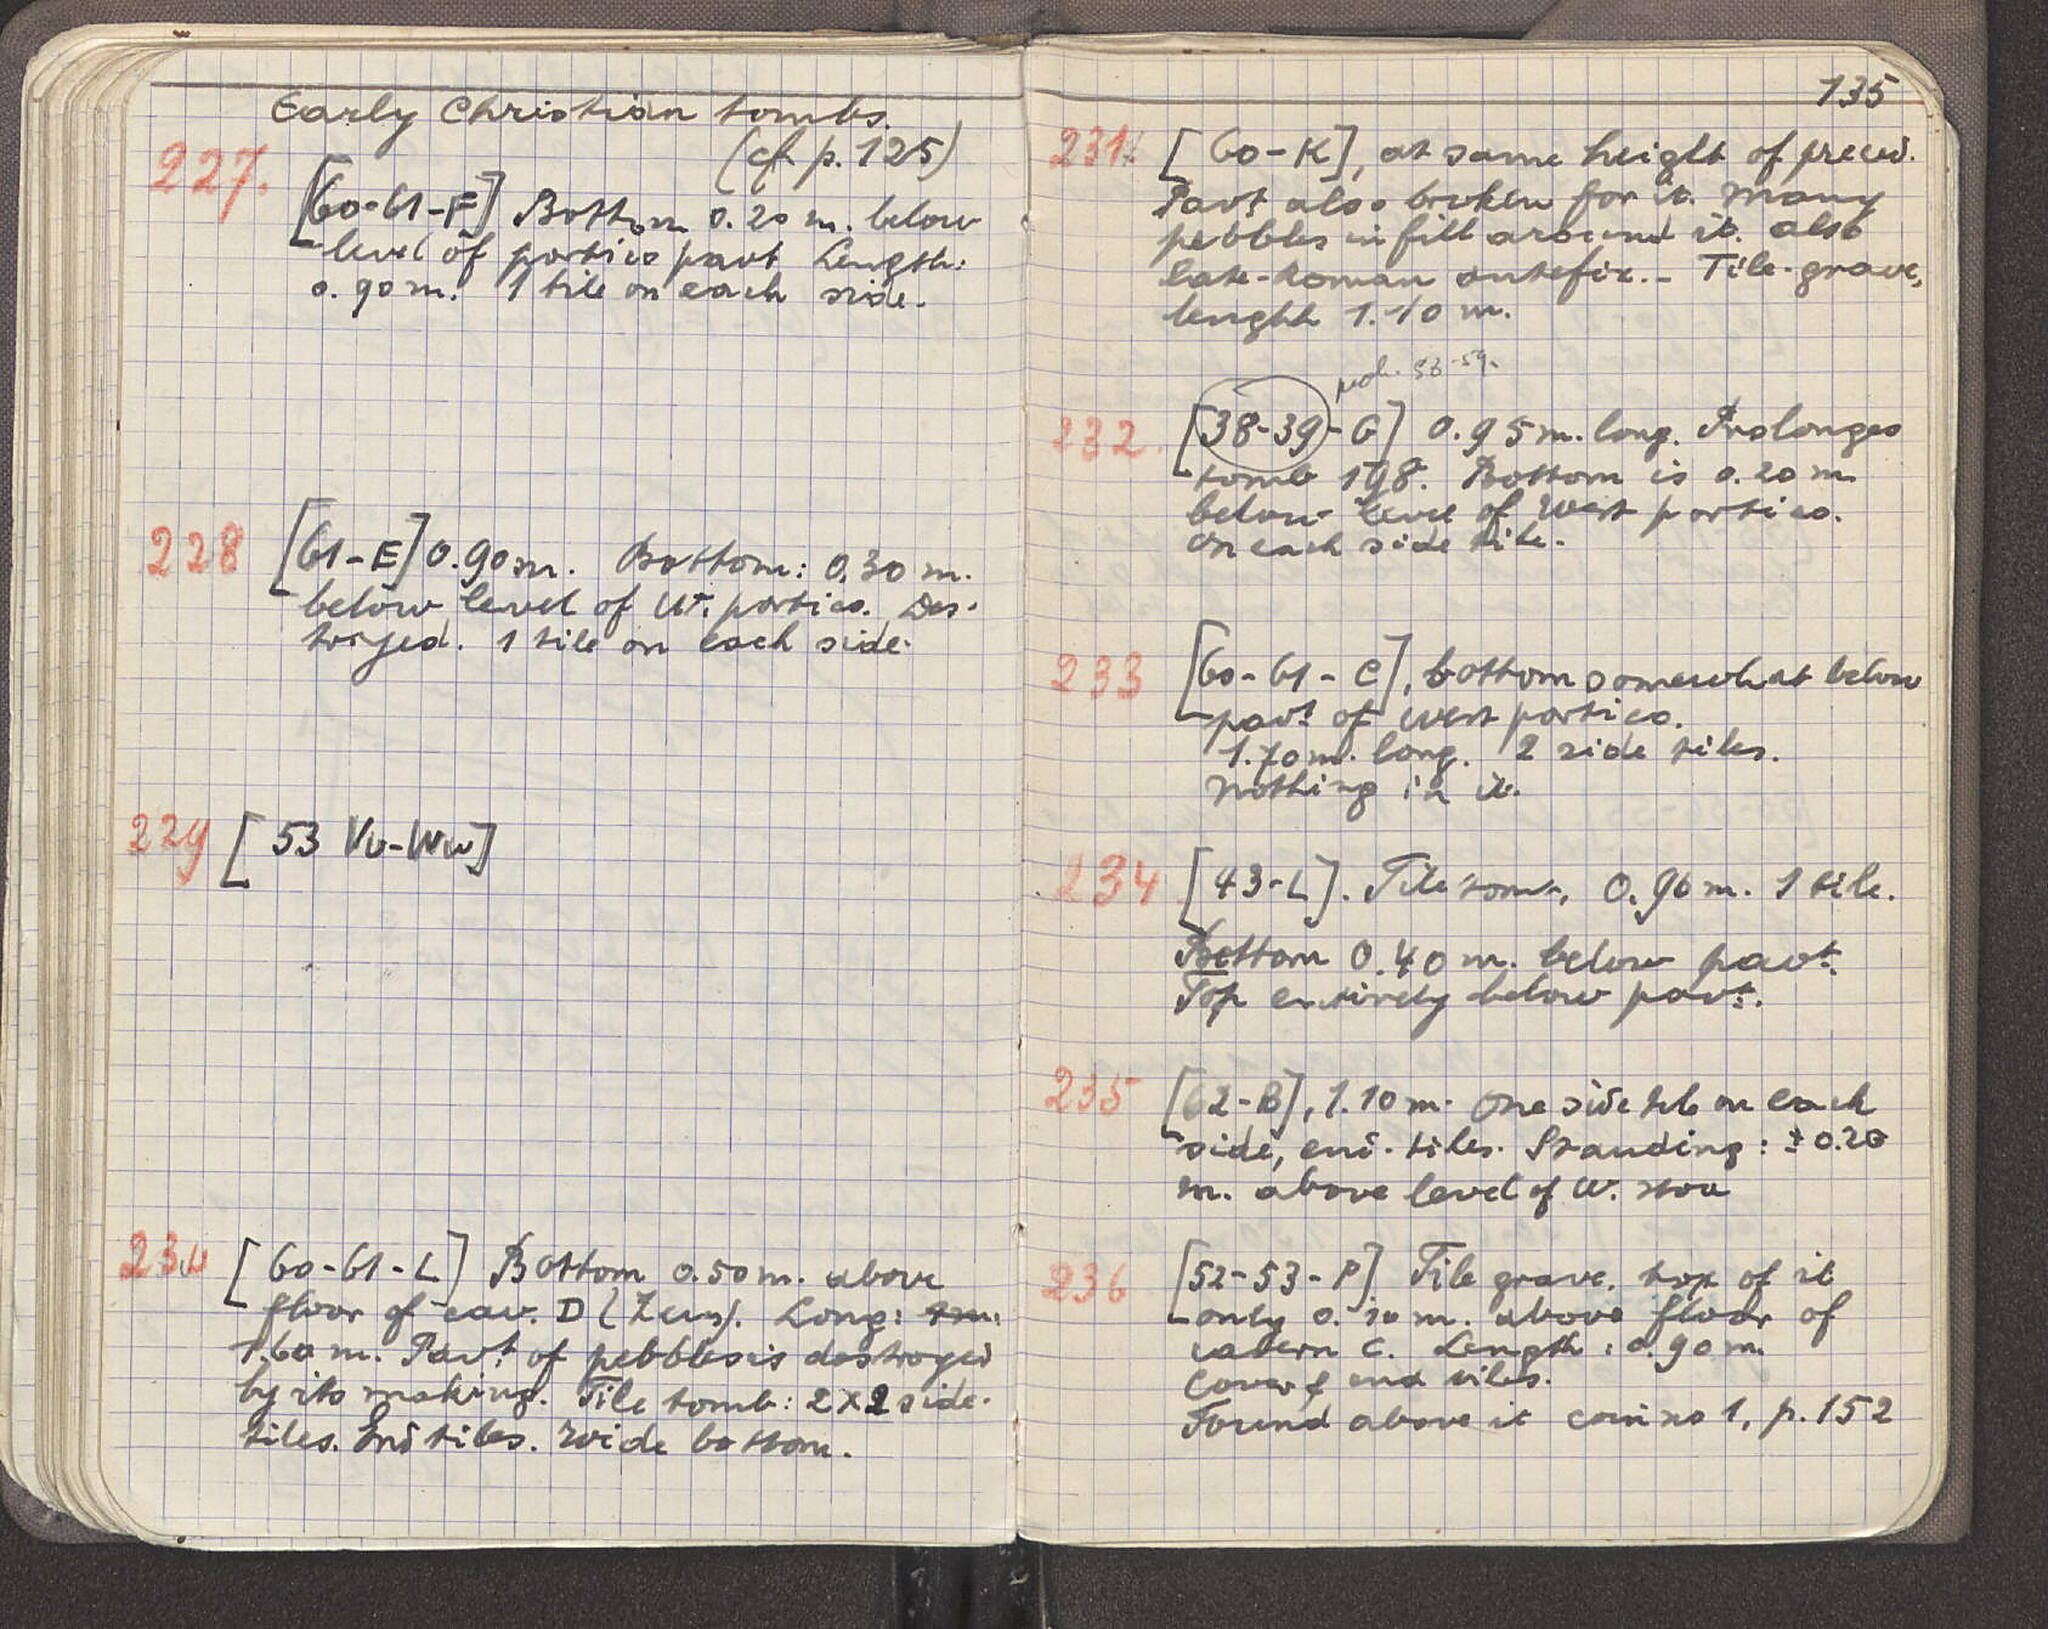 Early Christian tombs.
(cf. p. 125)
227. [60-61-F] Bottom 0.20 m. below
level of portico pavt Length:
0.90 m. 1 tile on each side.
228 [61-E] 0.90 m. Bottom: 0.30 m.
below level of W. portico. Des-
troyed. 1 tile on each side.
229 [53 Vv-Ww]
230 [60-61-L] Bottom 0.50 m. above
floor of cav. D (Zeus). Long:
1.60 m. Pavt of pebbles is destroyed
by its making. Tile tomb: 2x2 side-
tiles. End tiles. Wide bottom.
135
231. [60-K], at same height of preced.
Pavt also broken for it. Many
pebbles in fill around it. Also
late-Roman antefix.- Tile-grave,
lenght 1.10 m.
prob. 58-59.
232. [38-39-G] 0.95 m. long. Prolonges
tomb 198. Bottom is 0.20 m
below level of West portico.
On each side tile.
233 [60-61-C], bottom somewhat below
pavt of West portico.
1.70 m. long. 2 side tiles.
Nothing in it.
234 [43-L]. Tile tomb, 0.96 m. 1 tile.
Bottom 0.40 m. below pavt.
Top entirely below pavt.
235 [62-B], 1.10 m. One side tile on each
side, end-tiles. Standing: ± 0.20
m. above level of W. stoa
236 [52-53-P] Tile grave. top of it
only 0.10 m. above floor of
cavern C. Length: 0.90 m.
Cover & end tiles.
Found above it coin no 1, p. 152